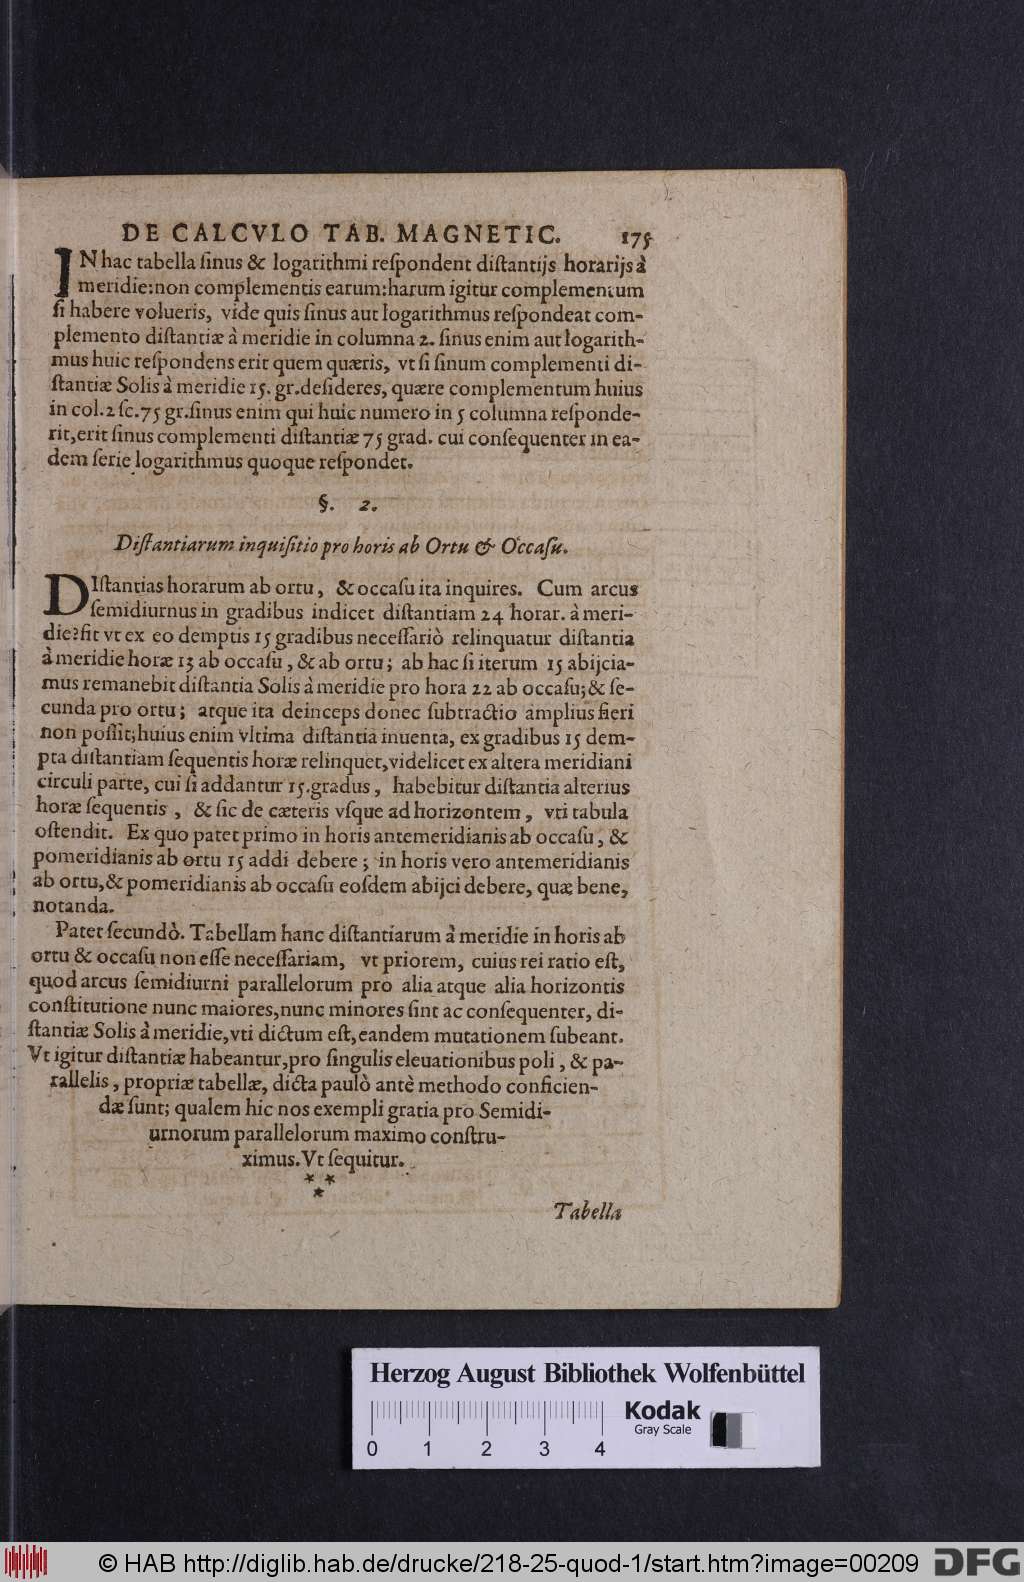 DE CALCVLO TAB. MAGNETIC. 175
IN hac tabella ſinus & logarithmi reſpondent diſtantijs horarijs à
meridie: non complementis earum: harum igitur complementum
ſi habere volueris, vide quis ſinus aut logarithmus reſpondeat com-
plemento diſtantiæ à meridie in columna 2. ſinus enim aut logarith-
mus huic reſpondens erit quem quæris, vt ſi ſinum complementi di-
ſtantiæ Solis à meridie 15. gr. deſideres, quære complementum huius
in col. 2 ſc. 75 gr. ſinus enim qui huic numero in 5 columna reſponde-
rit, erit ſinus complementi diſtantiæ 75 grad. cui conſequenter in ea-
dem ſerie logarithmus quoque reſpondet.
§. 2.
Diſtantiarum inquiſitio pro horis ab Ortu & Occaſu.
DIſtantias horarum ab ortu, & occaſu ita inquires. Cum arcus
ſemidiurnus in gradibus indicet diſtantiam 24 horar. à meri-
die? fit vt ex eo demptis 15 gradibus neceſſariò relinquatur diſtantia
à meridie horæ 13 ab occaſu, & ab ortu; ab hac ſi iterum 15 abijcia-
mus remanebit diſtantia Solis à meridie pro hora 22 ab occaſu; & ſe-
cunda pro ortu; atque ita deinceps donec ſubtractio amplius fieri
non poſſit; huius enim vltima diſtantia inuenta, ex gradibus 15 dem-
pta diſtantiam ſequentis horæ relinquet, videlicet ex altera meridiani
circuli parte, cui ſi addantur 15. gradus, habebitur diſtantia alterius
horæ ſequentis, & ſic de cæteris vſque ad horizontem, vti tabula
oſtendit. Ex quo patet primo in horis antemeridianis ab occaſu, &
pomeridianis ab ortu 15 addi debere; in horis vero antemeridianis
ab ortu, & pomeridianis ab occaſu eoſdem abijci debere, quæ bene,
notanda.
Patet ſecundò. Tabellam hanc diſtantiarum à meridie in horis ab
ortu & occaſu non eſſe neceſſariam, vt priorem, cuius rei ratio eſt,
quod arcus ſemidiurni parallelorum pro alia atque alia horizontis
conſtitutione nunc maiores, nunc minores ſint ac conſequenter, di-
ſtantiæ Solis à meridie, vti dictum eſt, eandem mutationem ſubeant.
Vt igitur diſtantiæ habeantur, pro ſingulis eleuationibus poli, & pa-
rallelis, propriæ tabellæ, dicta paulò antè methodo conficien-
dæ ſunt; qualem hic nos exempli gratia pro Semidi-
urnorum parallelorum maximo conſtru-
ximus. Vt ſequitur.
* *
*
Tabella
Herzog August Bibliothek Wolfenbüttel
Kodak
Gray Scale
0 1 2 3 4
© HAB http://diglib.hab.de/drucke/218-25-quod-1/start.htm?image=00209 DFG